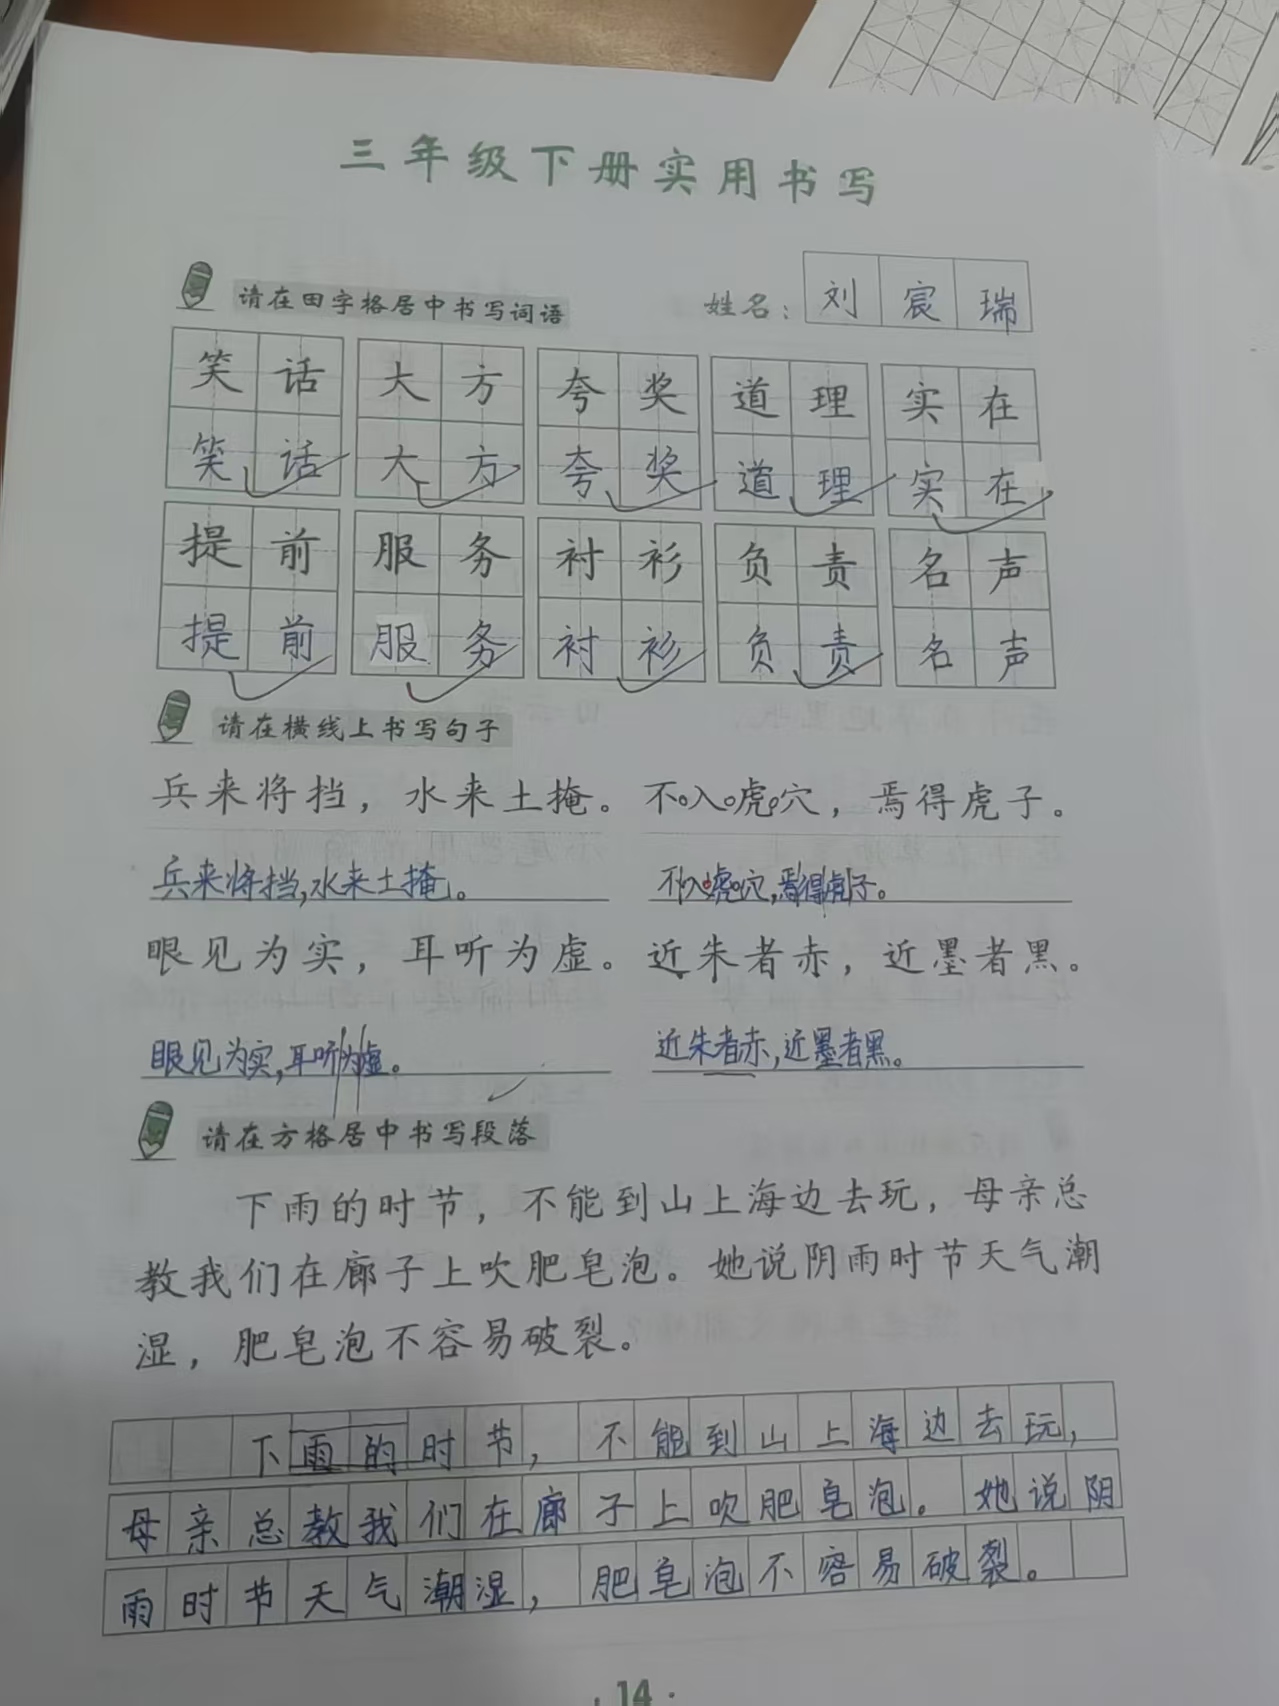 三年级下册实用书写
请在田字格居中书写词语 姓名：刘宸瑞
笑话 大方 夸奖 道理 实在
笑话 大方 夸奖 道理 实在
提前 服务 衬衫 负责 名声
提前 服务 衬衫 负责 名声
请在横线上书写句子
兵来将挡，水来土掩。 不入虎穴，焉得虎子。
兵来将挡，水来土掩。 不入虎穴，焉得虎子。
眼见为实，耳听为虚。 近朱者赤，近墨者黑。
眼见为实，耳听为虚。 近朱者赤，近墨者黑。
请在方格居中书写段落
下雨的时节，不能到山上海边去玩，母亲总
教我们在廊子上吹肥皂泡。她说阴雨时节天气潮
湿，肥皂泡不容易破裂。
下雨的时节，不能到山上海边去玩，
母亲总教我们在廊子上吹肥皂泡。她说阴
雨时节天气潮湿，肥皂泡不容易破裂。
14